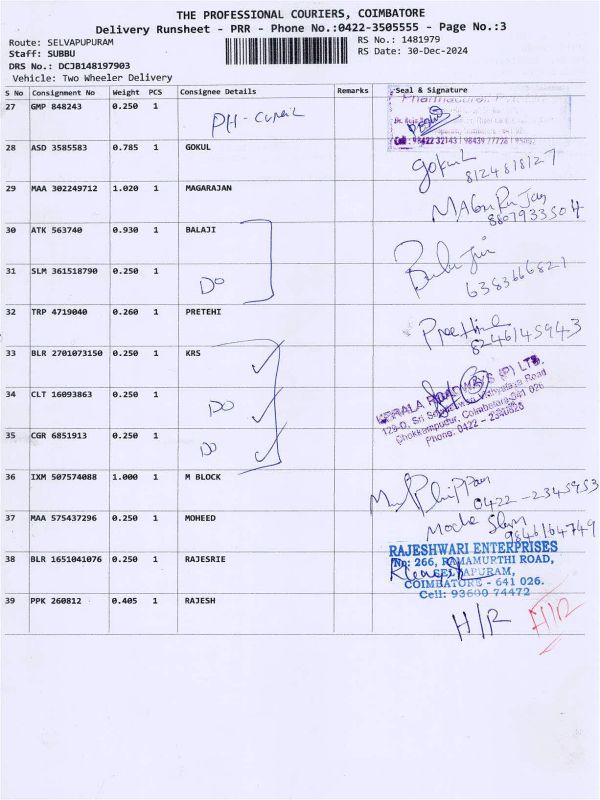 THE PROFESSIONAL COURIERS, COIMBATORE
Delivery Runsheet - PRR - Phone No.:0422-3505555 - Page No.:3
Route: SELVAPUPURAM RS No.: 1481979
Staff: SUBBU RS Date: 30-Dec-2024
DRS No.: DCJB148197903
Vehicle: Two Wheeler Delivery
S No Consignment No Weight PCS Consignee Details Remarks Seal & Signature
27 GMP 848243 0.250 1 PH-
Cell : 98422 32143 | 98439 77728 |
28 ASD 3585583 0.785 1 GOKUL Gokul
8124818127
29 MAA 302249712 1.020 1 MAGARAJAN
8807933504
30 ATK 563740 0.930 1 BALAJI
31 SLM 361518790 0.250 1 DO
6383666821
32 TRP 4719040 0.260 1 PRETEHI
8246145943
33 BLR 2701073150 0.250 1 KRS
KERALA ROADWAYS (P) LTD.
34 CLT 16093863 0.250 1 DO
Chokkampudur, Coimbatore-641 026
Phone: 0422 - 2340825
35 CGR 6851913 0.250 1 DO
36 IXM 507574088 1.000 1 M BLOCK
0422-2345953
37 MAA 575437296 0.250 1 MOHEED
9846164749
38 BLR 1651041076 0.250 1 RAJESRIE
RAJESHWARI ENTERPRISES
No: 266, RAMAMURTHI ROAD,
SELVAPURAM,
COIMBATORE - 641 026.
Cell: 93600 74472
39 PPK 260812 0.405 1 RAJESH H/R H/R